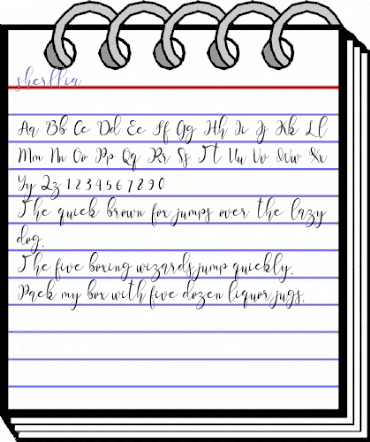 sherllia
Aa Bb Cc Dd Ee Ff Gg Hh Ii Jj Kk Ll
Mm Nn Oo Pp Qq Rr Ss Tt Uu Vv Ww Xx
Yy Zz 1 2 3 4 5 6 7 8 9 0
The quick brown fox jumps over the lazy
dog.
The five boxing wizards jump quickly.
Pack my box with five dozen liquor jugs.